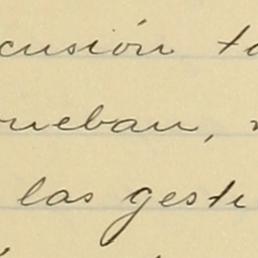 cusión ta
rueban,
las geste